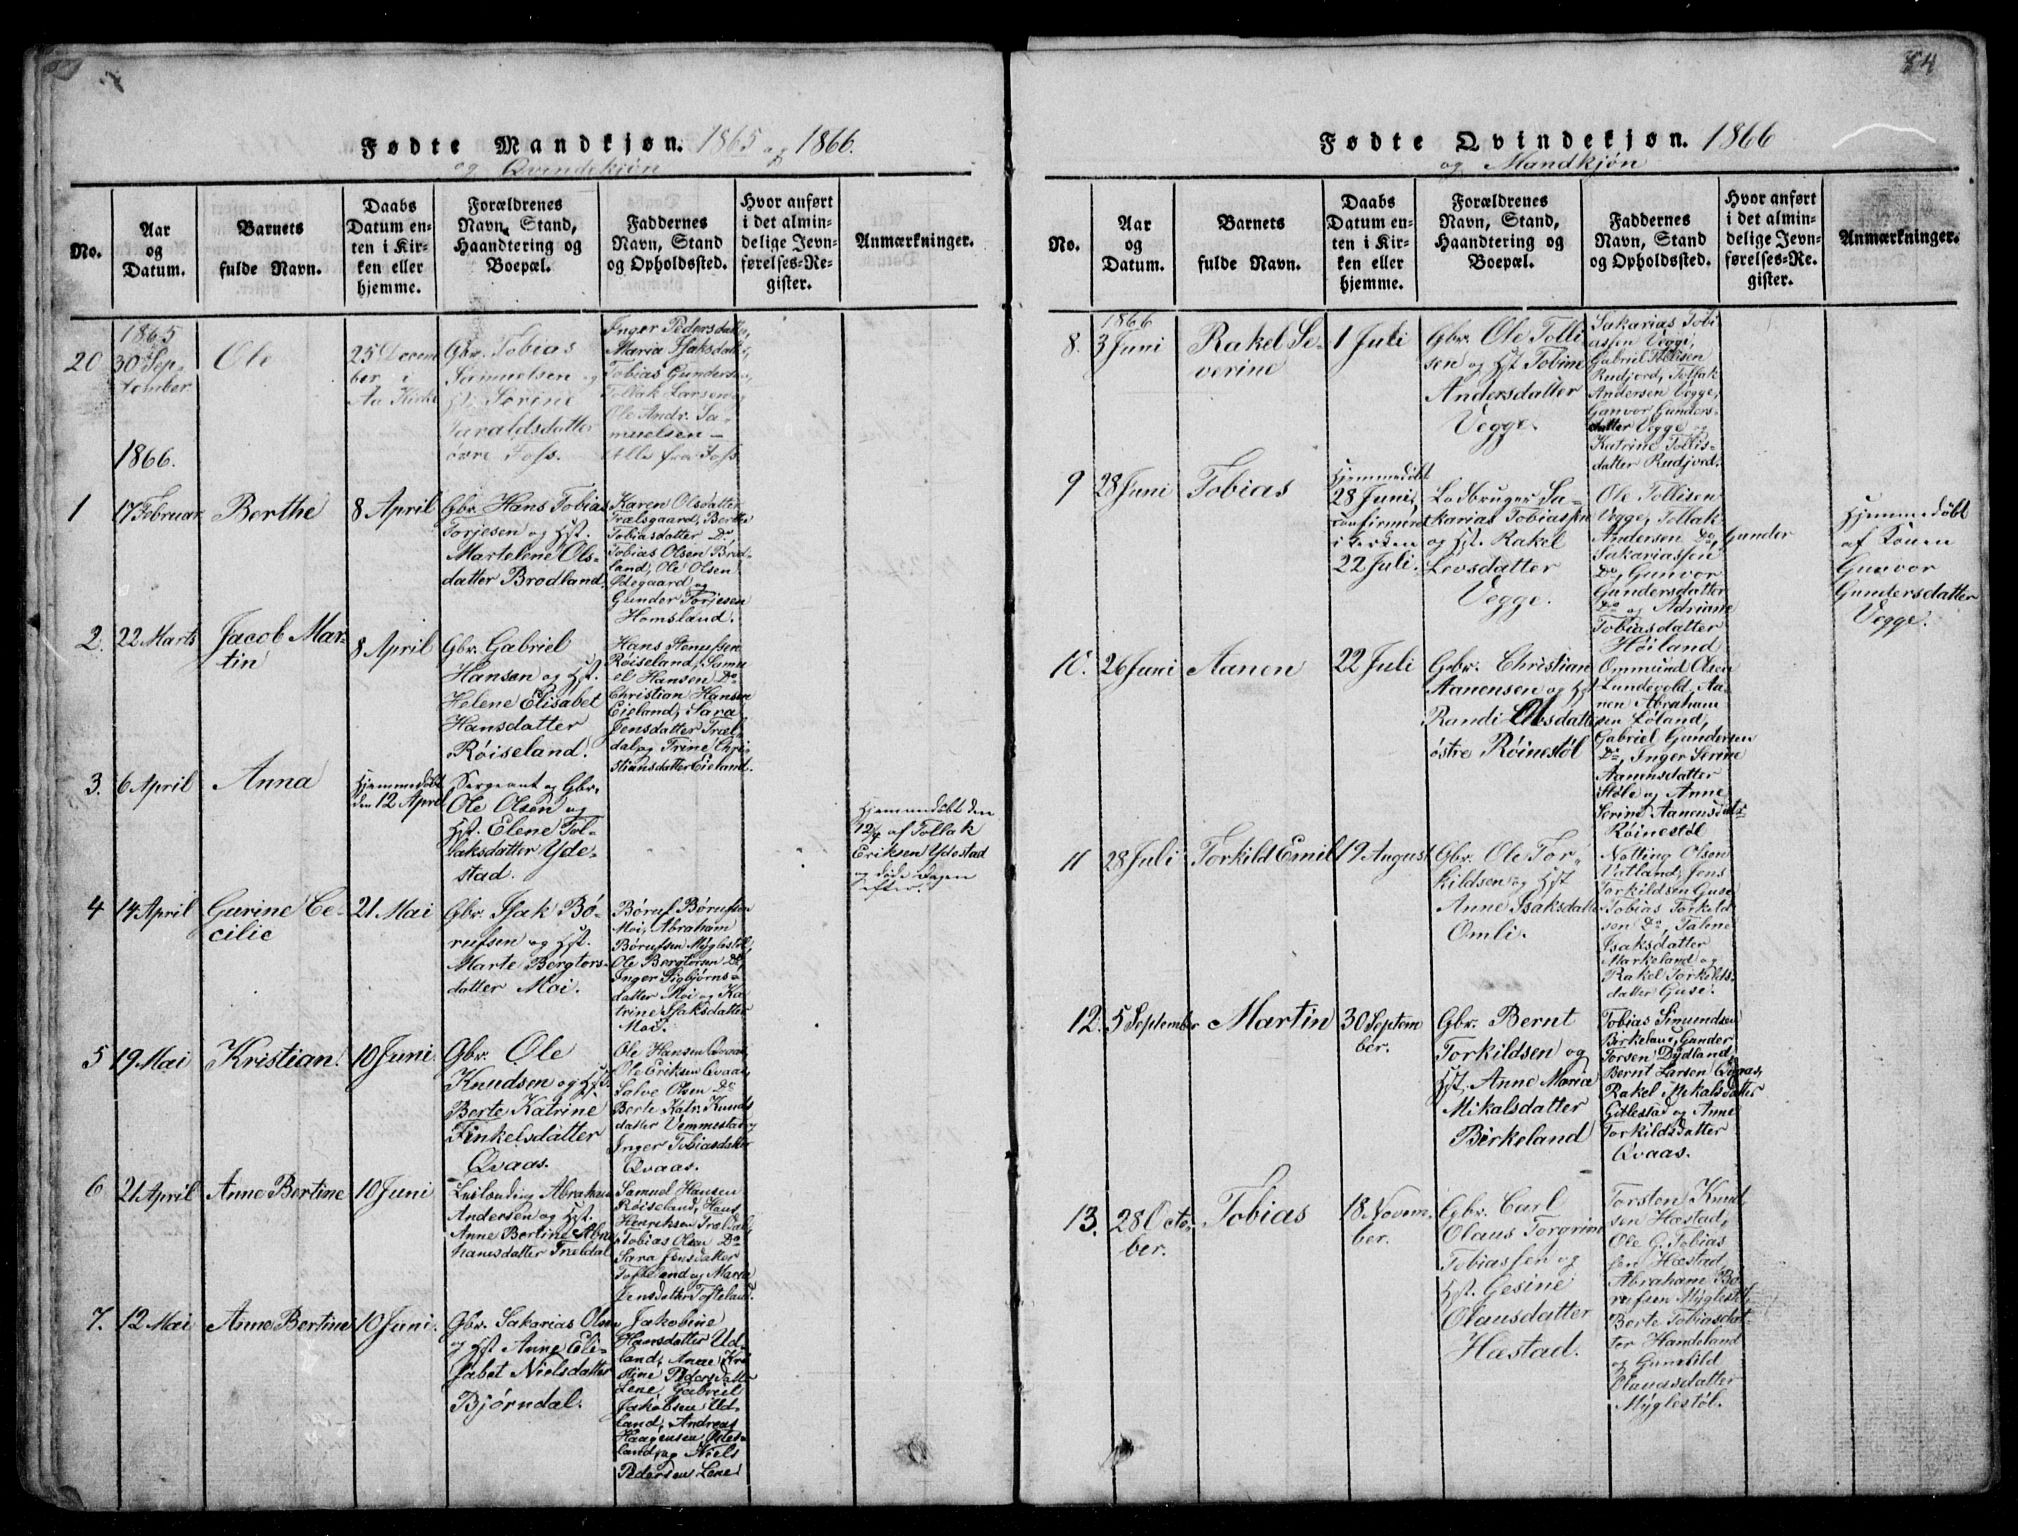 84
Fødte Mandkjøn. 1865 og 1866.
og Qvindekjøn
No.
Aar
og
Datum.
Barnets
fulde Navn.
Daabs
Datum en-
ten i Kir-
ken eller
hjemme.
Forældrenes
Navn, Stand,
Haandtering og
Boepæl.
Faddernes
Navn, Stand
og Opholdssted.
Hvor anført
i det almin-
delige Jevn-
førelses-Re-
gister.
Anmærkninger.
20
1865
30 Sep-
tember
Ole
25 Decem
ber i
Aa Kirke
Gbr. Tobias
Samuelsen og
Hst. Serine
Taraldsdatter
øvre Foss.
Inger Pedersdatter,
Maria Isaksdatter,
Tobias Gundersen,
Tollak Larsen og
Ole Andr. Sa-
muelsen –
Alle fra Foss
1866.
1
17 Februar
Berthe
8 April
Gbr. Hans Tobias
Torjesen og Hst.
Martelene Ols-
datter Brodland.
Karen Olsdatter
Trælsgaard, Berthe
Tobiasdatter Do,
Tobias Olsen Brod-
land, Ole Olsen
Ødegaard og
Gunder Torjesen
Homsland.
2.
22 Marts
Jacob Mar-
tin
8 April
Gbr. Gabriel
Hansen og Hst.
Helene Elisabet
Hansdatter
Røiseland.
Hans Stenufsen
Røiseland, Samu
el Hansen Do
Christian Hansen
Eieland, Sara
Jensdatter Træl-
dal og Trine Chri-
stiansdatter Eieland.
3.
6 April
Anna
Hjemmedøbt
den 12 April
Sergeant og Gbr.
Ole Olsen og
Hst. Elene Tol-
laksdatter Yde-
stad.
Hjemmedøbt den
12/4 af Tollak
Eriksen Ydestad
og døde Dagen
efter.
4
14 April
Gurine Ce-
cilie
21 Mai
Gbr. Isak Bø-
rufsen og Hst.
Marte Bergtors-
datter Moi.
Børuf Børufsen
Moi, Abraham
Børufsen Myglestøl,
Ole Bergtorsen Do,
Inger Sigbjørns-
datter Moi og Ka
trine Isaksdatter
Moi.
5
19 Mai
Kristian.
10 Juni
Gbr. Ole
Knudsen og Hst.
Berte Katrine
Finkelsdatter
Qvaas.
Ole Hansen Qvaas,
Ole Eriksen Qvaas,
Salve Olsen Do
Berte Katr. Knuds
datter Vemmestad og
Inger Tobiasdatter
Qvaas.
6
21 April
Anne Bertine
10 Juni
Indsending Abraham
Andersen og Hst.
Anne Bertine Abra
hamsdatter Trældal
Samuel Hansen
Røiseland, Hans
Henriksen Trældal,
Tobias Olsen Do
Sara Jensdatter
Tofteland og Maria
Jensdatter Tofteland.
7.
12 Mai
Anne Bertine
10 Juni.
Gbr. Sakarias Olsen
og Hst Anne Eli-
sabet Nielsdatter
Bjørndal.
Jakobine
Hansdatter Ud-
land, Anne Kri
stine Pedersdatter
Lene, Gabriel
Jakobsen Ud
land, Andreas
Haagensen Ødes-
land, og Niels
Pedersen Lene
Fødte Qvindekjøn. 1866
og Mandkjøn
No.
Aar
og
Datum.
Barnets
fulde Navn.
Daabs
Datum en-
ten i Kir-
ken eller
hjemme.
Forældrenes
Navn, Stand,
Haandtering og
Boepæl.
Faddernes
Navn, Stand
og Opholdssted.
Hvor anført
i det almin-
delige Jevn-
førelses-Re-
gister.
Anmærkninger.
8.
1866
3 Juni
Rakel Se-
verine
1 Juli
Gbr. Ole Tolli
sen og Hst Tobine
Andersdatter
Vegge.
Sakarias Tobi
assen Vegge,
Gabriel Tollisen
Rudjord, Tollak
Andersen Vegge,
Gunvor Gunders-
datter Vegge og
Katrine Tollis-
datter Rudjord.
9
28 Juni
Tobias
Hjemmedøbt
28 Juni,
confirmeret
i Kirken
22 Juli.
Ledbruger Sa-
karias Tobiassen
og Hst. Rakel
Levsdatter
Vegge.
Ole Tollisen
Vegge, Tollak
Andersen Do, Gunder
Sakariassen
Do, Gunvor
Gundersdatter
Do og Adriane
Tobiasdatter
Høiland
Hjemmedøbt
af Konen
Gunvor
Gundersdatter
Vegge.
10.
26 Juni
Aanen
22 Juli
Gbr. Christian
Aanensen og Hst
Randi Olsdatter
østre Røinestøl
Ommund Olsen
Lundevold, Aa-
nen Abraham
sen Løland,
Gabriel Gundersen
Do, Inger Serine
Aanensdatter
Støle og Anne
Serine Aanensdatr
Røinestøl
11
28 Juli
Torkild Emil
19 August
Gbr. Ole Tor-
kildsen og Hst
Anne Isaksdatter
Omli.
Notting Olsen
Vatland, Jens
Torkildsen Guse
Tobias Torkild
sen Do Taline
Isaksdatter
Markeland og
Rakel Torkilds-
datter Guse.
12.
5 September
Martin
30 Septem
ber.
Gbr. Bernt
Torkildsen og
Hst. Anne Marie
Mikalsdatter
Birkeland
Tobias Simundsen
Birkeland, Gunder
Torsen Dydland,
Bernt Larsen Qvaas,
Rakel Mekalsdatter
Gitlestad og Anne
Torkildsdatter
Qvaas.
13.
28 Octo-
ber.
Tobias
18 Novem-
ber.
Gbr. Carl
Olaus Torgrim
Tobiassen og
Hst. Gesine
Olausdatter
Hæstad.
Torsten Knud
sen Hæstad,
Ole G. Tobias
sen Hæstad,
Abraham Bø-
rufsen Myglestøl,
Berte Tobiasdat-
ter Handeland
og Gunhild
Olausdatter
Myglestøl.